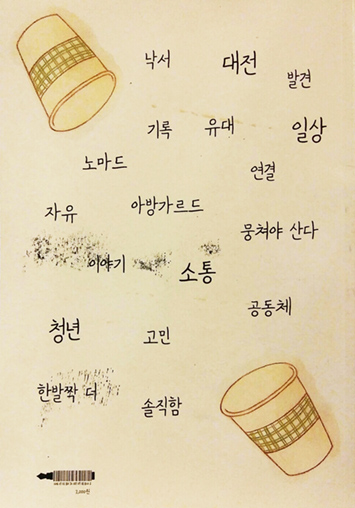 낙서
대전
발견
기록
유대
일상
노마드
연결
자유
아방가르드
뭉쳐야 산다
이야기
소통
공동체
청년
고민
한발짝 더
솔직함